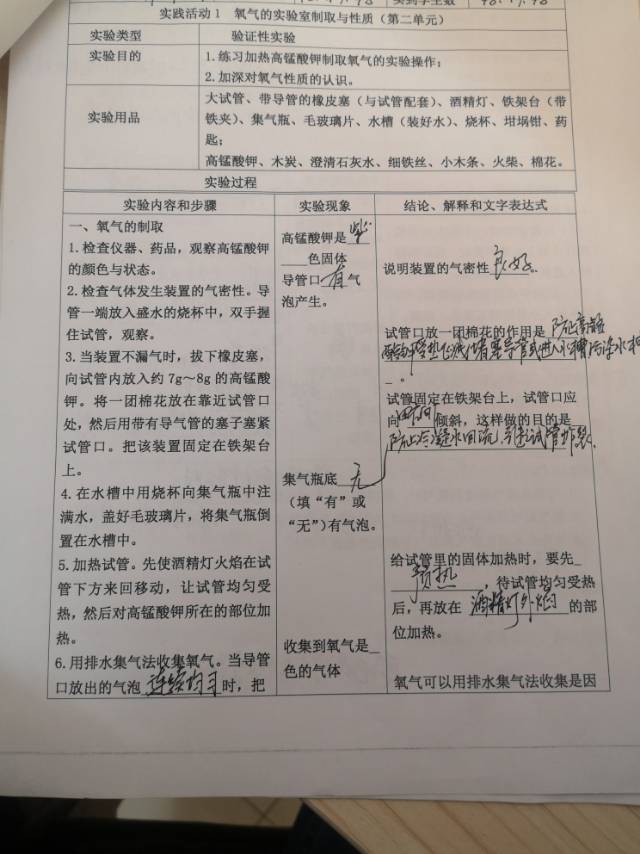 实践活动1 氧气的实验室制取与性质（第二单元）
实验类型 验证性实验
实验目的 1.练习加热高锰酸钾制取氧气的实验操作；
2.加深对氧气性质的认识。
实验用品 大试管、带导管的橡皮塞（与试管配套）、酒精灯、铁架台（带
铁夹）、集气瓶、毛玻璃片、水槽（装好水）、烧杯、坩埚钳、药
匙；
高锰酸钾、木炭、澄清石灰水、细铁丝、小木条、火柴、棉花。
实验过程
实验内容和步骤 实验现象 结论、解释和文字表达式
一、氧气的制取
1.检查仪器、药品，观察高锰酸钾
的颜色与状态。
2.检查气体发生装置的气密性。导
管一端放入盛水的烧杯中，双手握
住试管，观察。
3.当装置不漏气时，拔下橡皮塞，
向试管内放入约7g～8g的高锰酸
钾。将一团棉花放在靠近试管口
处，然后用带有导气管的塞子塞紧
试管口。把该装置固定在铁架台
上。
4.在水槽中用烧杯向集气瓶中注
满水，盖好毛玻璃片，将集气瓶倒
置在水槽中。
5.加热试管。先使酒精灯火焰在试
管下方来回移动，让试管均匀受
热，然后对高锰酸钾所在的部位加
热。
6.用排水集气法收集氧气。当导管
口放出的气泡连续均匀时，把
高锰酸钾是紫
色固体
导管口有气
泡产生。
集气瓶底无
（填“有”或
“无”）有气泡。
收集到氧气是
色的气体
说明装置的气密性良好。
试管口放一团棉花的作用是防止高锰
酸钾受热飞溅堵塞导管或进入水槽污染水
。
试管固定在铁架台上，试管口应
向 倾斜，这样做的目的是
防止冷凝水回流，引起试管炸裂。
给试管里的固体加热时，要先
预热，待试管均匀受热
后，再放在酒精灯外焰的部
位加热。
氧气可以用排水集气法收集是因